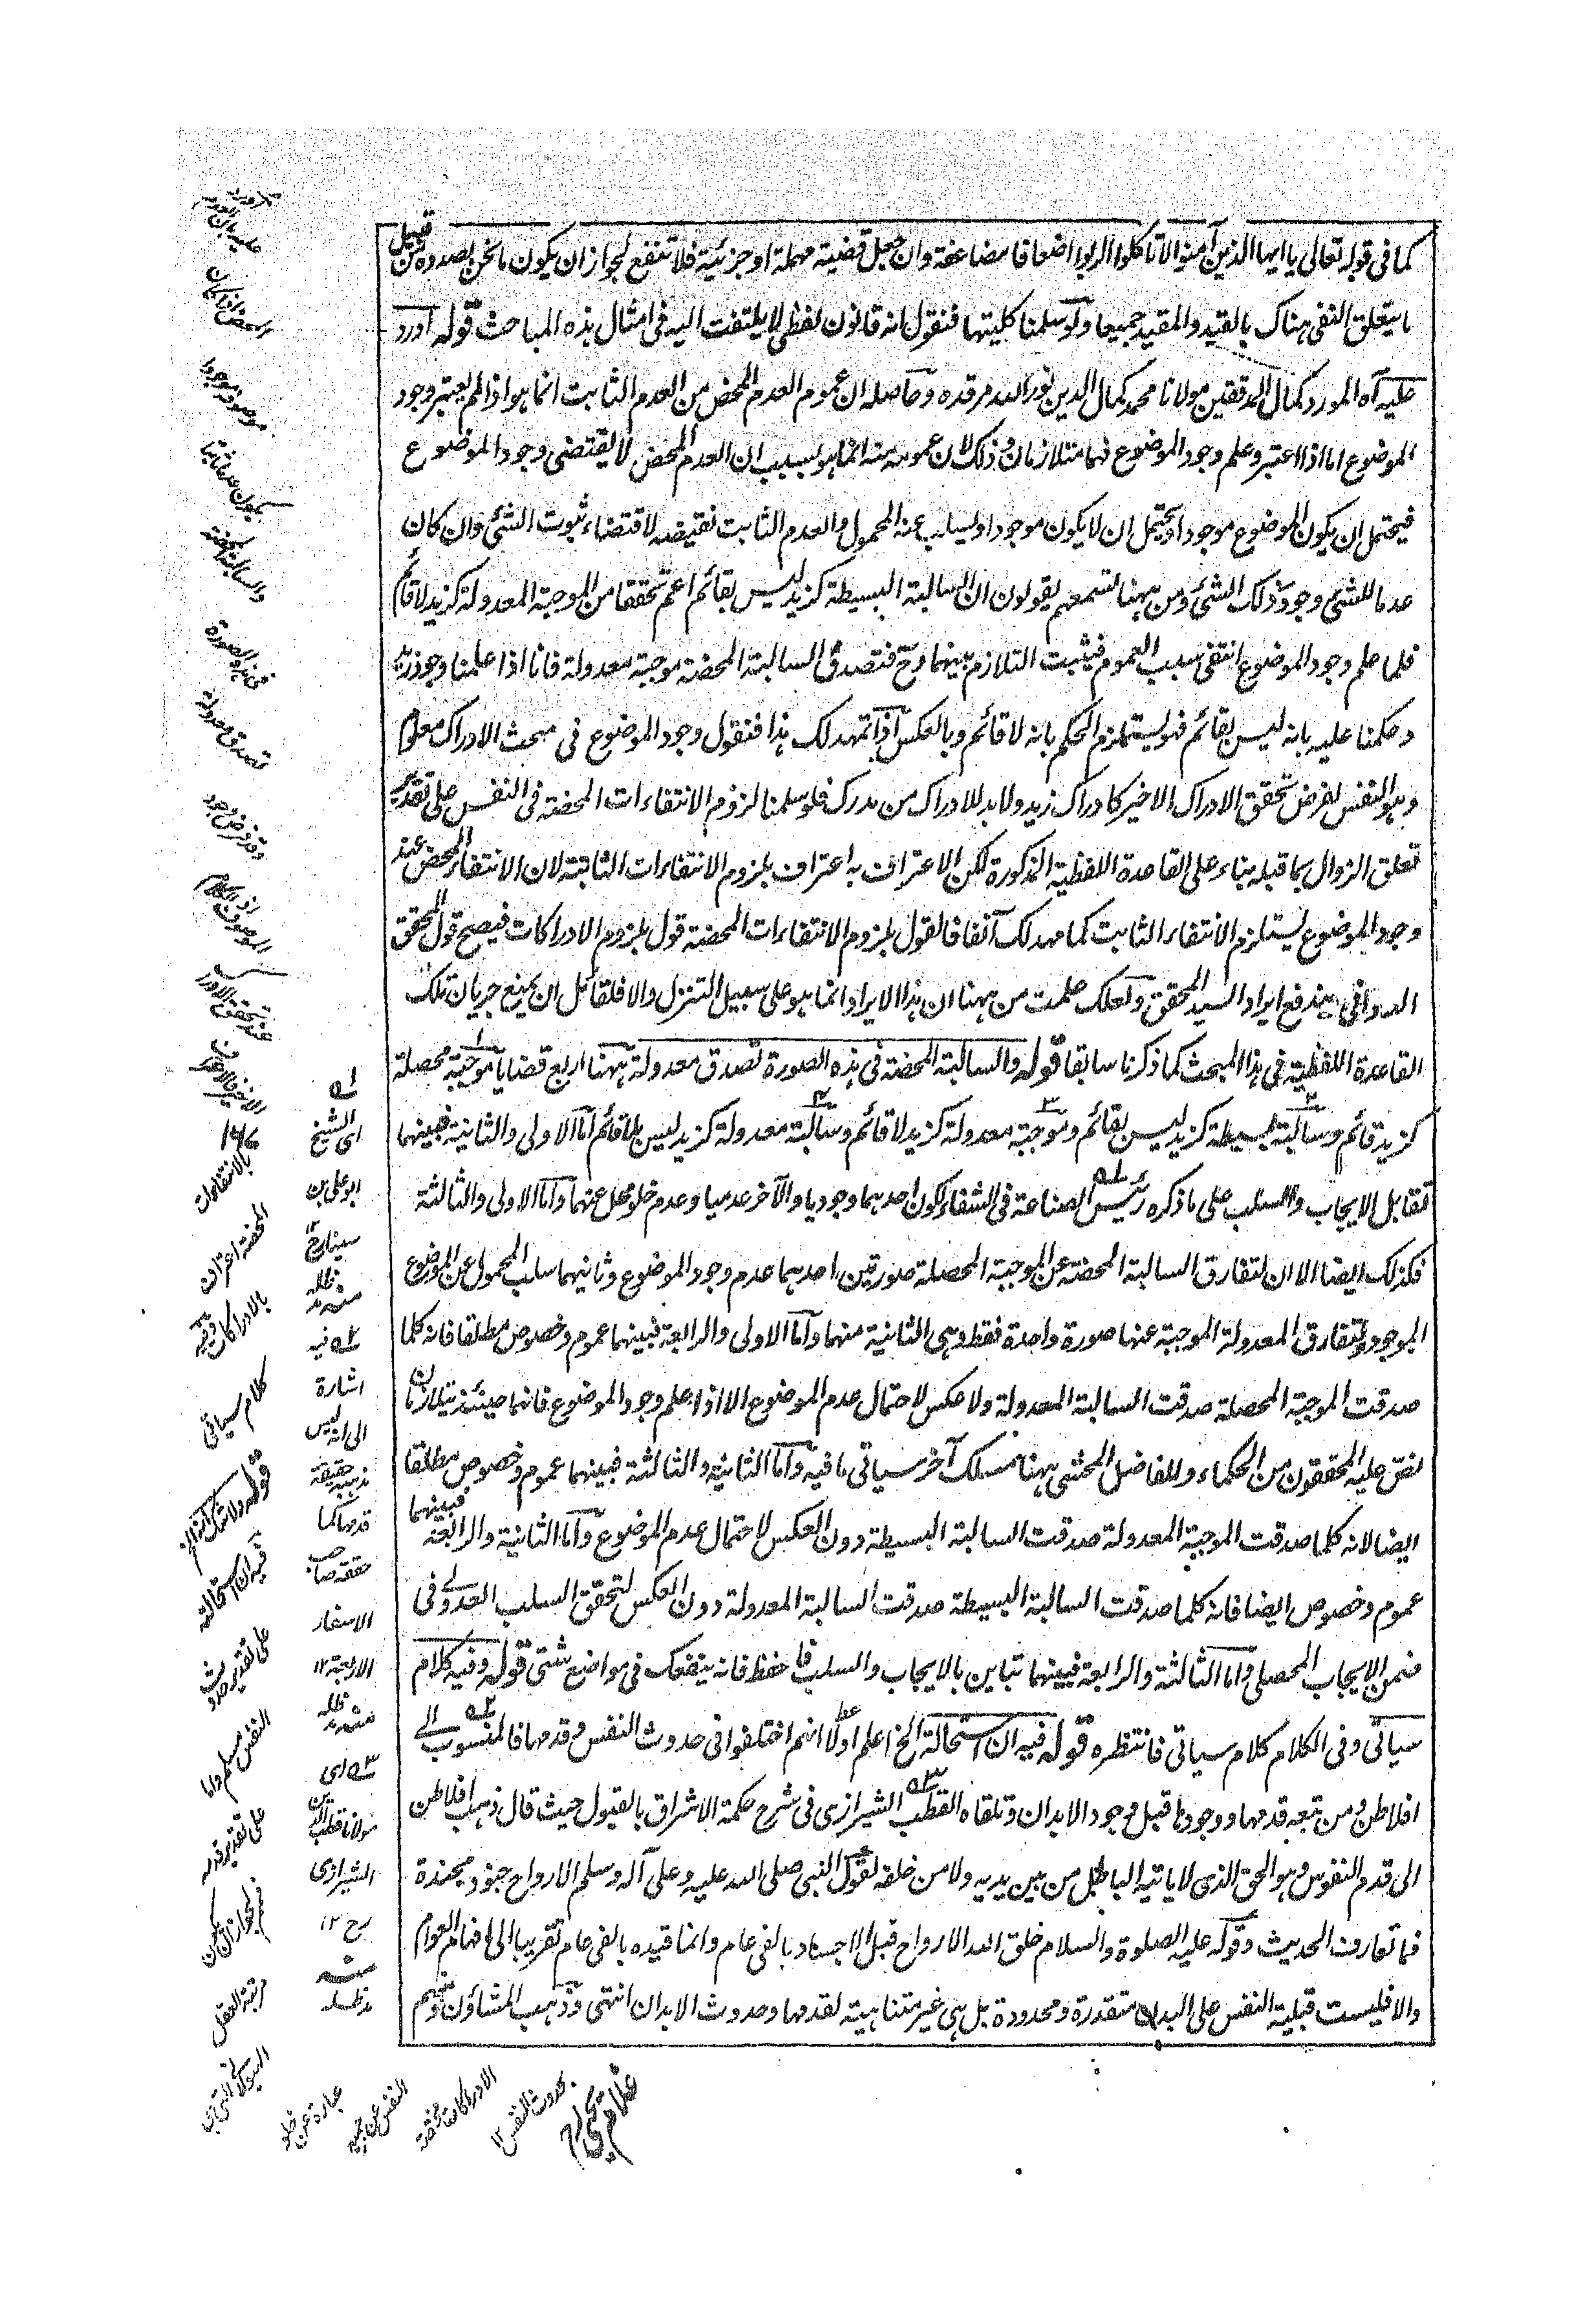 كما فى قوله تعالى يا ايها الذين آمنوا لا تاكلوا الربوا اضعافا مضاعفة وان جعل قضية مهملة او جزئية فلا تنفع لجواز ان يكون ما نحن بصدده من قبيل
ما يتعلق النفى هناك بالقيد والمقيد جميعا ولو سلمنا كليتها فنقول انه قانون لفظى لا يلتفت اليه فى امثال هذه المباحث قوله اورد
عليه آه المورد كمال المدققين مولانا محمد كمال الدين نور الله مرقده وحاصله ان عموم العدم المحض من العدم الثابت انما هو اذا لم يعتبر وجود
الموضوع اما اذا اعتبر وعلم وجود الموضوع فهما متلازمان وذلك لان عمومه منه انما هو بسبب ان العدم المحض لا يقتضى وجود الموضوع
فيحتمل ان يكون الموضوع موجودا ويحتمل ان لا يكون موجودا وليسلب عنه المحمول والعدم الثابت نقيضه لاقتضاء ثبوت الشئ وان كان
عدما للشئ وجود ذلك الشئ ومن ههنا تسمعهم يقولون ان السالبة البسيطة كزيد ليس بقائم اعم تحققا من الموجبة المعدولة كزيد لا قائم
فلما علم وجود الموضوع انتفى سبب العموم فيثبت التلازم بينهما وح فتصدق السالبة المحضة موجبة معدولة فانا اذا علمنا وجود زيد
وحكمنا عليه بانه ليس بقائم فهو يستلزم الحكم بانه لا قائم وبالعكس اذا تمهد لك هذا فنقول وجود الموضوع فى مبحث الادراك معلوم
وهو النفس لفرض تحقق الادراك الاخير كادراك زيد ولا بد للادراك من مدرك فلو سلمنا لزوم الانتفاءات المحضة فى النفس على تقدير
تعلق الزوال بما قبله بناء على القاعدة اللفظية المذكورة لكن الاعتراف به اعتراف بلزوم الانتفاءات الثابتة لان الانتفاء المحض عند
وجود الموضوع يستلزم الانتفاء الثابت كما مهد لك آنفا فالقول بلزوم الانتفاءات المحضة قول بلزوم الادراكات فيصح قول المحقق
الدوانى يندفع ايراد السيد المحقق ولعلك علمت من ههنا ان هذا الايراد انما هو على سبيل التنزل والا فلقائل ان يمنع جريان تلك
القاعدة اللفظية فى هذا المبحث كما ذكرنا سابقا قوله والسالبة المحضة فى هذه الصورة تصدق معدولة ههنا اربع قضايا موجبة محصلة
كزيد قائم وسالبة بسيطة كزيد ليس بقائم وموجبة معدولة كزيد لا قائم وسالبة معدولة كزيد ليس بلا قائم اما الاولى والثانية فبينهما
تقابل الايجاب والسلب على ما ذكره رئيس الصناعة فى الشفاء لكون احدهما وجوديا والآخر عدميا وعدم خلو محل عنهما واما الاولى والثالثة
فكذلك ايضا الا ان لتفارق السالبة المحضة عن الموجبة المحصلة صورتين احدهما عدم وجود الموضوع وثانيهما سلب المحمول عن الموضوع
الموجود ولتفارق المعدولة الموجبة عنها صورة واحدة فقط وهى الثانية منهما واما الاولى والرابعة فبينهما عموم وخصوص مطلقا فانه كلما
صدقت الموجبة المحصلة صدقت السالبة المعدولة ولا عكس لاحتمال عدم الموضوع الا اذا علم وجود الموضوع فانهما حينئذ يتلازمان
نص عليه المحققون من الحكماء وللفاضل المحشى ههنا مسلك آخر سياتى ما فيه واما الثانية والثالثة فبينهما عموم وخصوص مطلقا
ايضا لانه كلما صدقت الموجبة المعدولة صدقت السالبة البسيطة دون العكس لاحتمال عدم الموضوع واما الثانية والرابعة فبينهما
عموم وخصوص ايضا فانه كلما صدقت السالبة البسيطة صدقت السالبة المعدولة دون العكس لتحقق السلب العدولى فى
ضمن الايجاب المحصلى واما الثالثة والرابعة فبينهما تباين بالايجاب والسلب فاحفظ فانه ينفعك فى مواضع شتى قوله وفيه كلام
سياتى وفى الكلام كلام سياتى فانتظره قوله فيه ان استحالة الخ اعلم اولا انهم اختلفوا فى حدوث النفس وقدمها فالمنسوب الى
افلاطن ومن تبعه قدمها ووجودها قبل وجود الابدان وتلقاه القطب الشيرازى فى شرح حكمة الاشراق بالقبول حيث قال ذهب افلاطن
الى قدم النفوس وهو الحق الذى لا ياتيه الباطل من بين يديه ولا من خلفه لقول النبى صلى الله عليه وعلى آله وسلم الارواح جنود مجندة
فما تعارف الحديث وقوله عليه الصلوة والسلام خلق الله الارواح قبل الاجساد بالفى عام وانما قيده بالفى عام تقريبا الى افهام العوام
والا فليست قبلية النفس على البدن متقدرة ومحدودة بل هى غير متناهية لقدمها وحدوث الابدان انتهى وذهب المشاؤن ومنهم
اى الشيخ
ابو على بن
سينا رح
منه مد ظله
فيه
اشارة
الى انه ليس
مذهبه حقيقة
قدمها كما
حققه صاحب
الاسفار
الاربعة ١٢
منه مد ظله
اى
مولانا قطب الدين
الشيرازى
رح ١٢
منه
مد ظله
موضوع موجود
يكون
والسالبة المحضة
فى هذه الصورة
تصدق معدولة
وقد فرض وجود
الموصوف
عند تحقق الادراك
بالانتفاءات
المحضة اعتراف
بالادراكات وفيه
كلام سياتى
قوله ولا شك
فيه ان استحالة
على تقدير حدوث
النفس مسلم واما
على تقدير قدمه
فلا لجواز ان يكون
مرتبة العقل
الهيولانى التى هى
عبارة عن خلو
النفس عن جميع
الادراكات مختصة
بحدوث النفس ١٢
غلام يحيى رح